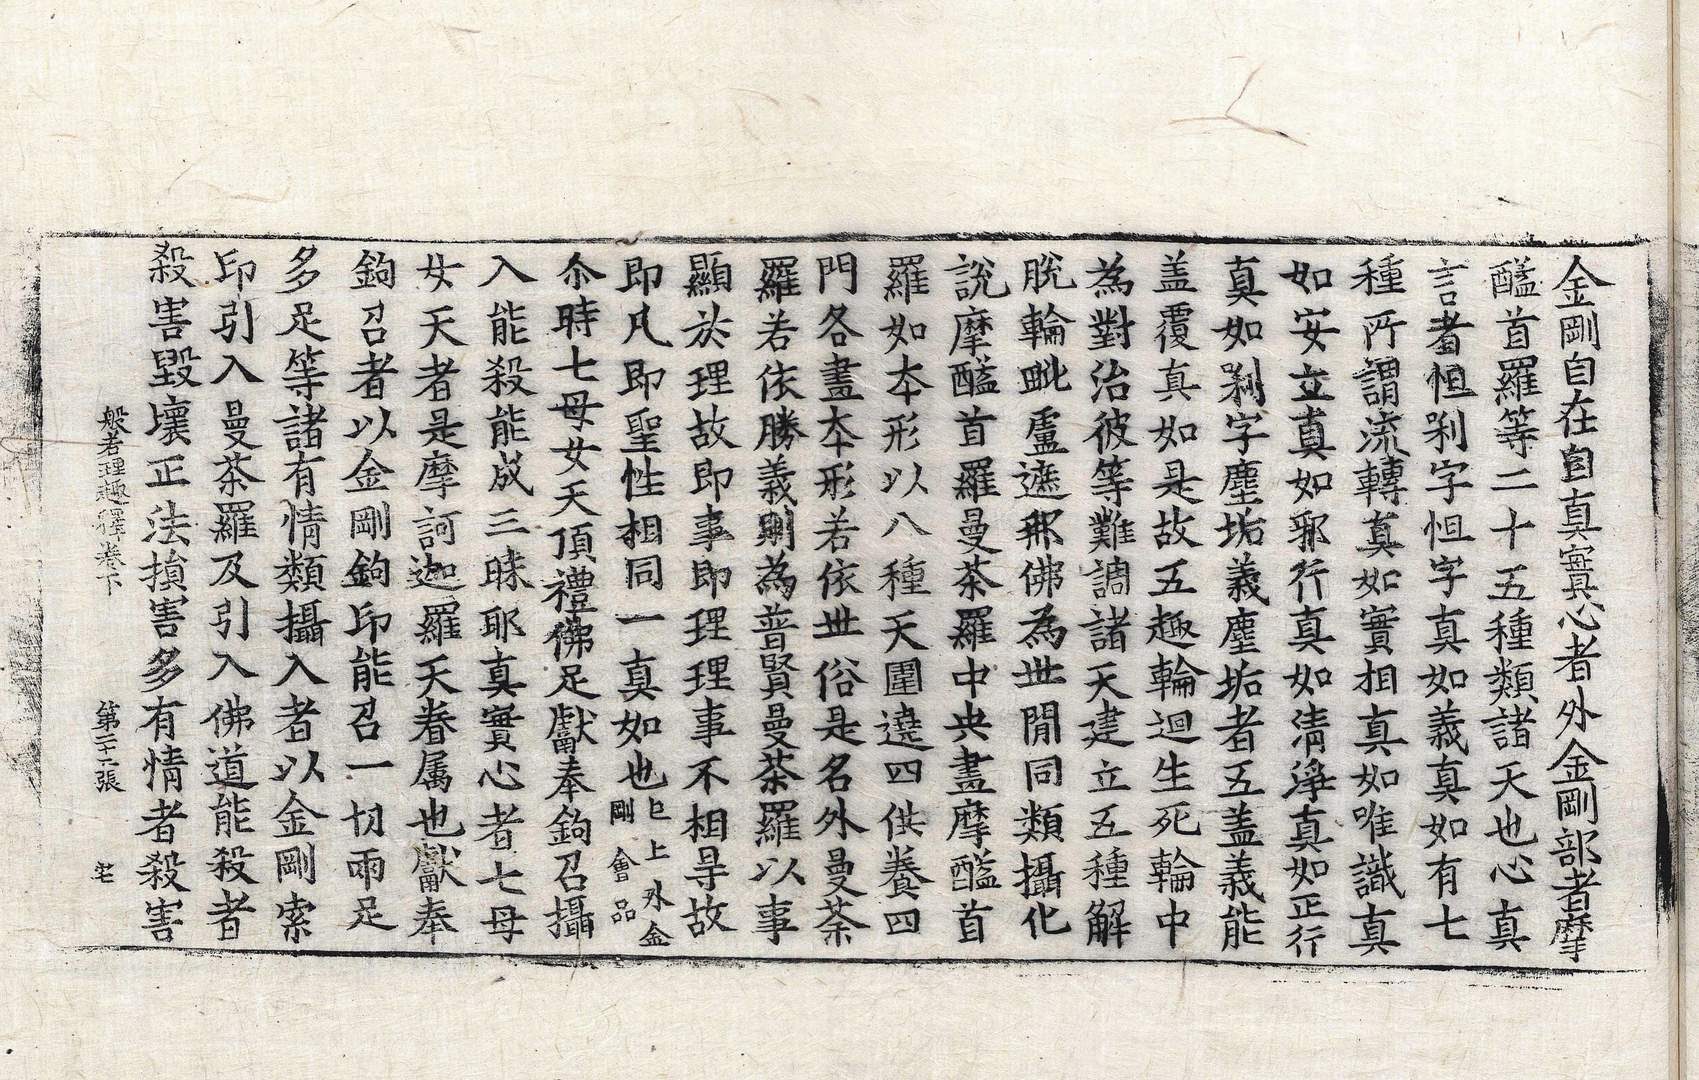 金剛自在自真實心者外金剛部者摩
醯首羅等二十五種類諸天也心真
言者怛剎字怛字真如義真如有七
種所謂流轉真如實相真如唯識真
如安立真如邪行真如清淨真如正行
真如剎字塵垢義塵垢者五盖義能
盖覆真如是故五趣輪迴生死輪中
為對治彼等難調諸天建立五種解
脫輪毗盧遮那佛為世間同類攝化
說摩醯首羅曼荼羅中央畫摩醯首
羅如本形以八種天圍遶四供養四
門各畫本形若依世俗是名外曼荼
羅若依勝義則為普賢曼荼羅以事
顯於理故即事即理理事不相㝵故
即凡即聖性相同一真如也已上外金剛會品
尒時七母女天頂禮佛足獻奉鉤召攝
入能殺能成三昧耶真實心者七母
女天者是摩訶迦羅天眷属也獻奉
鉤召者以金剛鉤印能召一切兩足
多足等諸有情類攝入者以金剛索
印引入曼荼羅及引入佛道能殺者
殺害毀壞正法損害多有情者殺害
般若理趣釋卷下 第二十二張